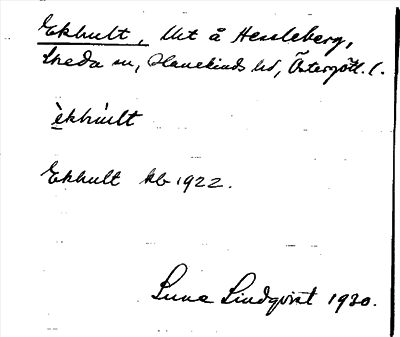 Ekhult, Utt å Hessleberg,
Skeda sn, Hanekinds hd, Östergötl. l.
èkhúlt
Ekhult kb 1922.
Sune Lindqvist 1930.